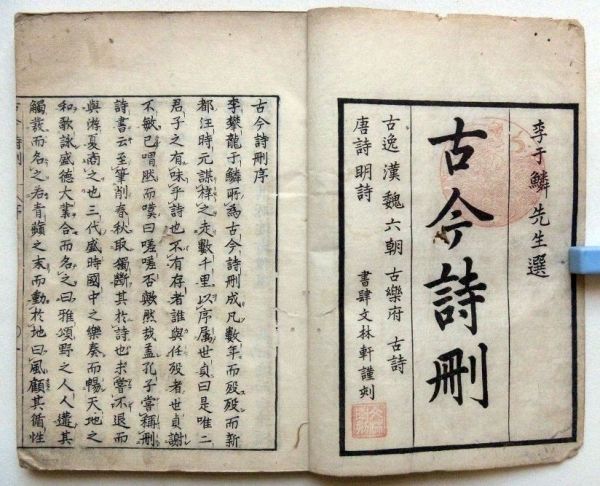 李于鱗先生選
古今詩刪
古逸 漢魏六朝 古樂府 古詩
唐詩 明詩
書肆文林軒謹刻
古今詩刪序
李攀龍于鱗所為古今詩刪成凡數年而歿歿而新
都汪時元謀梓之走數千里以序属世貞曰是唯二
君子之有味乎詩也不有存者誰與任歿者世貞謝
不敏已喟然而嘆曰嗟嗟否歟然哉盖孔子嘗稱刪
詩書云至筆削春秋取獨斷其於詩也未嘗不退而
與游夏商之也三代盛時國中之樂奏而暢天地之
和歌詠盛德大業合而名之曰雅頌野之人人遵其
觸發而名之若青蘋之末而動於地曰風顧其循性
古今詩刪